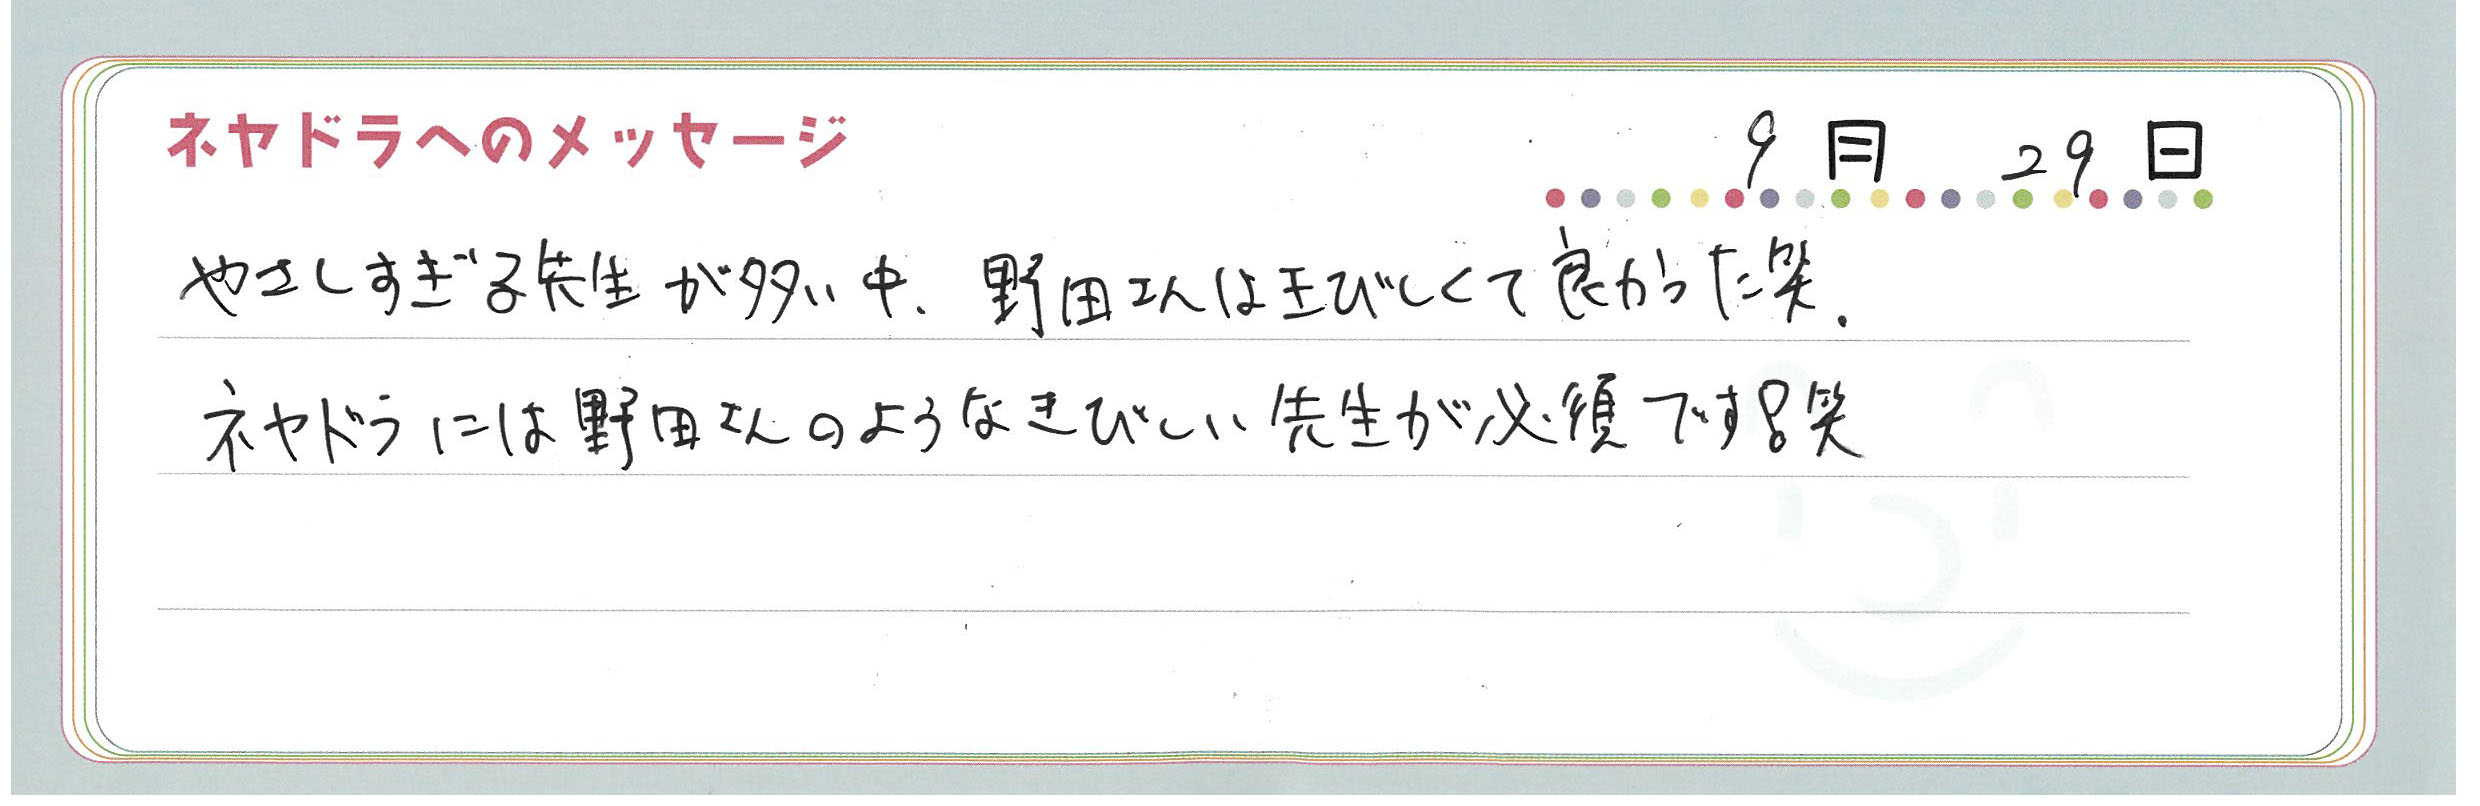 ネヤドラへのメッセージ
9月 29日
やさしすぎる先生が多い中、野田さんはきびしくて良かった笑.
ネヤドラには野田さんのようなきびしい先生が必須です!笑